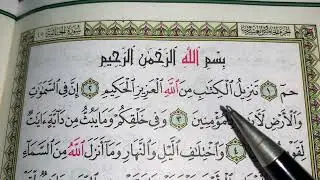 بِسْمِ ٱللَّهِ ٱلرَّحْمَٰنِ ٱلرَّحِيمِ
حمٓ ١ تَنزِيلُ ٱلْكِتَٰبِ مِنَ ٱللَّهِ ٱلْعَزِيزِ ٱلْحَكِيمِ ٢ إِنَّ فِى ٱلسَّمَٰوَٰتِ
وَٱلْأَرْضِ لَـَٔايَٰتٍ لِّلْمُؤْمِنِينَ ٣ وَفِى خَلْقِكُمْ وَمَا يَبُثُّ مِن دَآبَّةٍ ءَايَٰتٌ
لِّقَوْمٍ ٤ وَٱخْتِلَٰفِ ٱلَّيْلِ وَٱلنَّهَارِ وَمَآ أَنزَلَ ٱللَّهُ مِنَ ٱلسَّمَآءِ